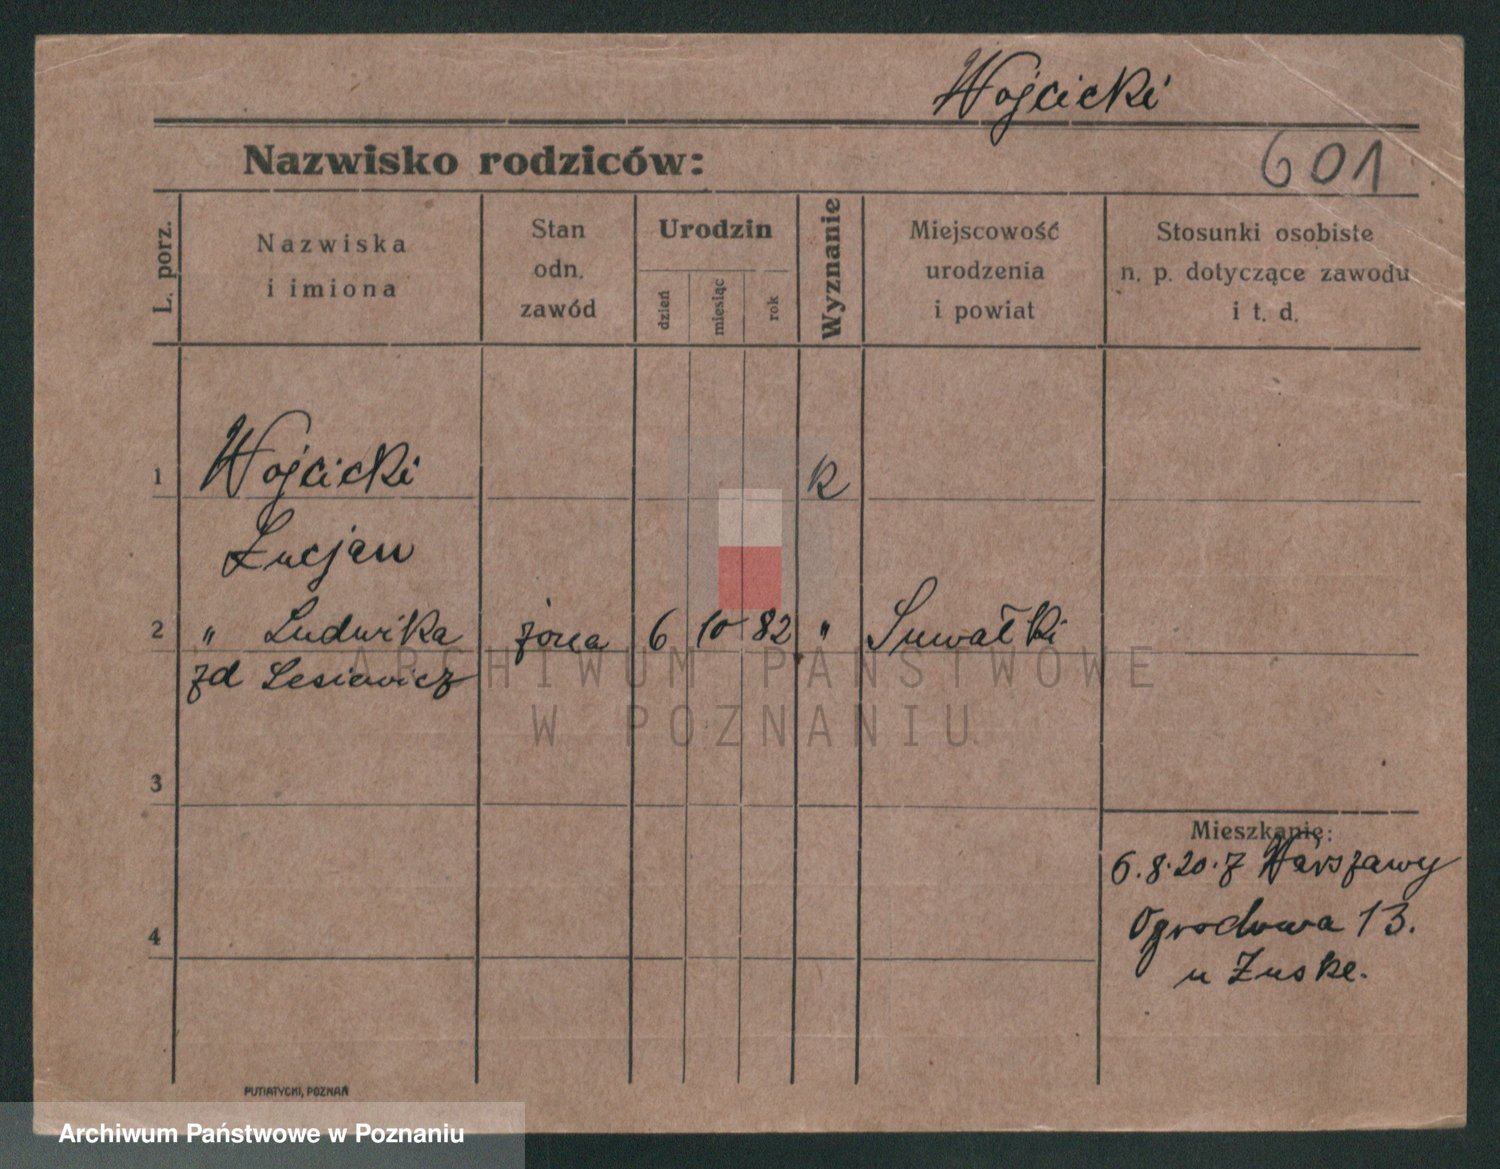 Wojcicki
Nazwisko rodziców:
601
L. porz.
Nazwiska
i imiona
Stan
odn.
zawód
Urodzin
dzień
miesiąc
rok
Wyznanie
Miejscowość
urodzenia
i powiat
Stosunki osobiste
n. p. dotyczące zawodu
i t. d.
1 Wojcicki k
Lucjan
2 " Ludwika żona 6 10 82 " Suwałki
zd Lesiewicz
ARCHIWUM PAŃSTWOWE
W POZNANIU
3
Mieszkanie:
6.8.20. z Warszawy
4
Ogrodowa 13.
u Zuske.
PUTIATYCKI, POZNAŃ
Archiwum Państwowe w Poznaniu